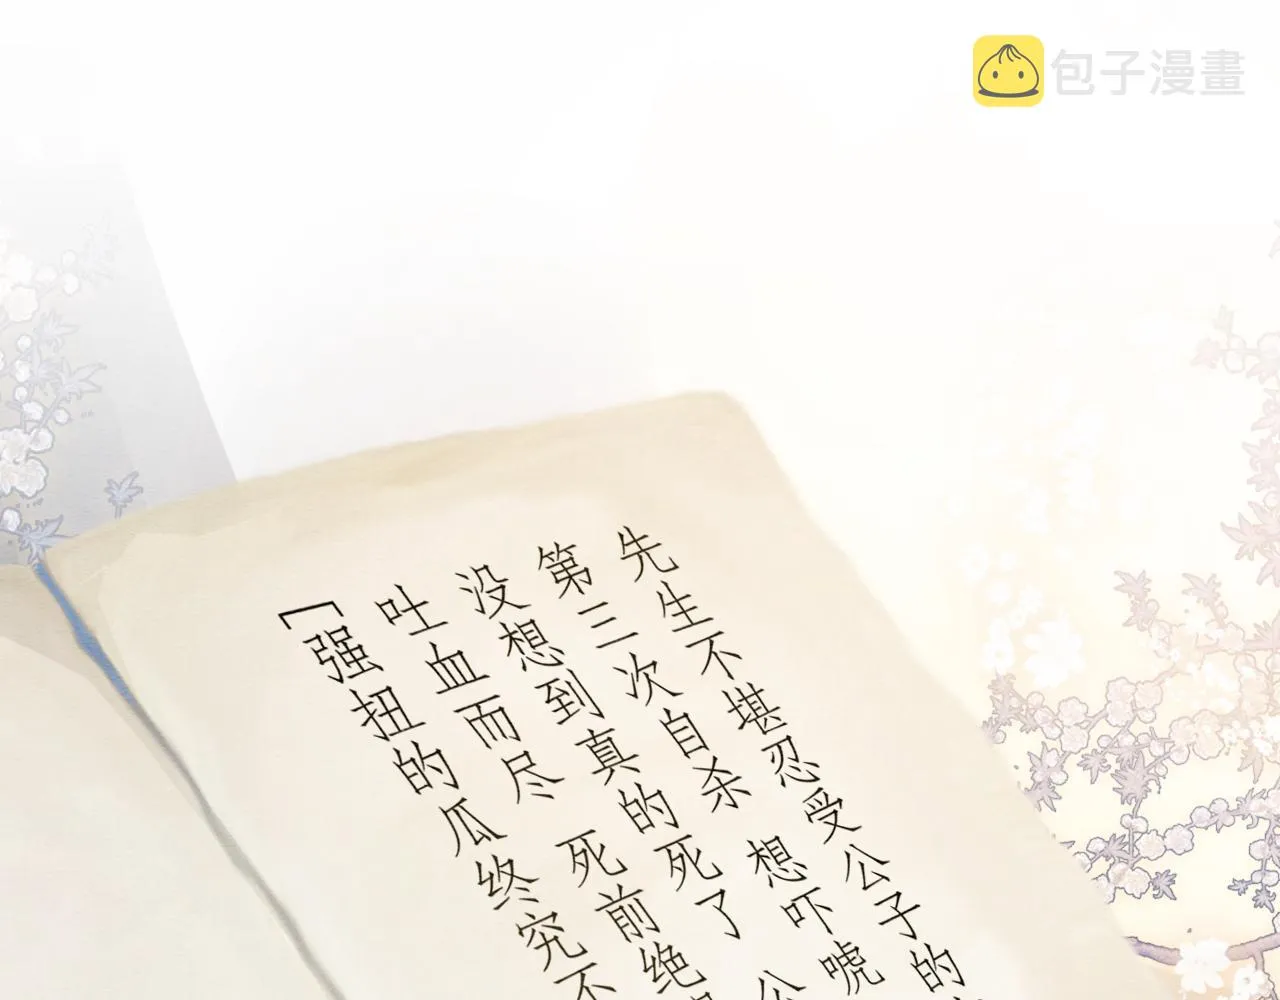 包子漫畫
先生不堪忍受公子的
第三次自杀 想吓唬
没想到真的死了 公
吐血而尽 死前绝
[强扭的瓜终究不